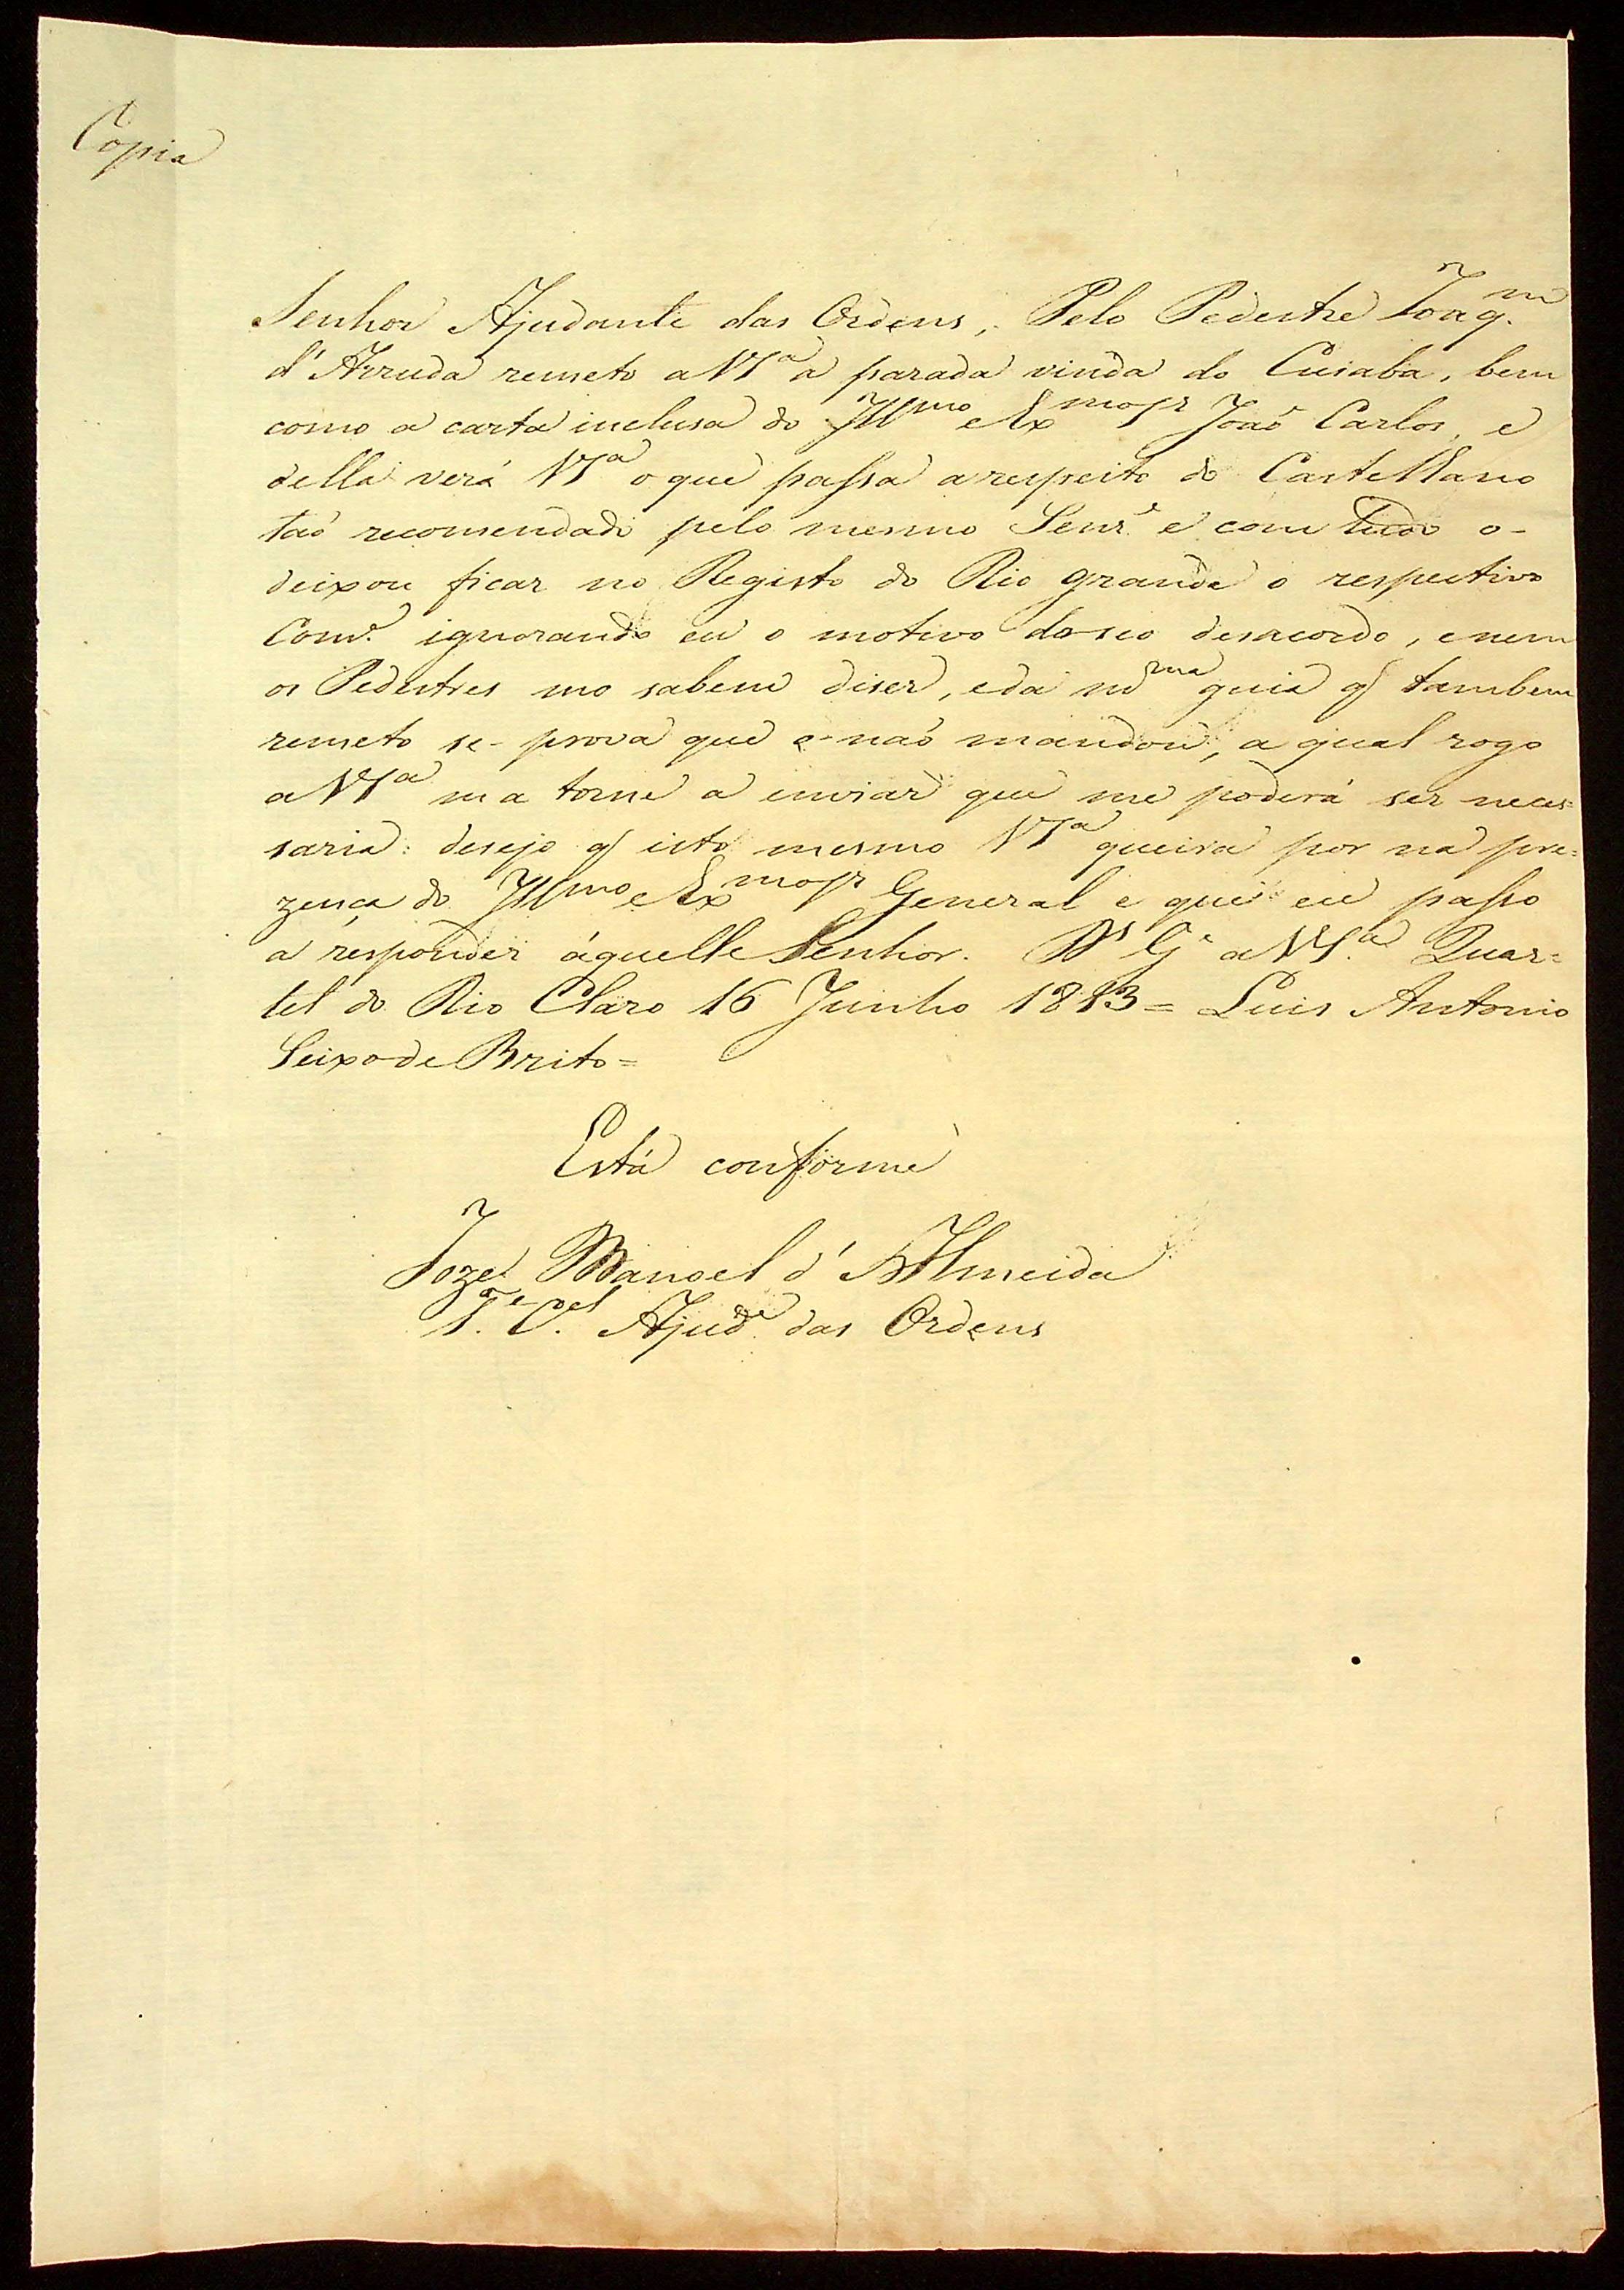 Copia
Senhor Ajudante das Ordens, Pelo Pedestre Joaq.m
d'Arruda remeto a VSa a parada vinda do Cuiaba, bem
como a carta inclusa do Illmo e Exmo Sr João Carlos, e
della verá VSa o que passa a respeito do Castelhano
taõ recomendado pelo mesmo Senr. e com tudo o-
deixou ficar no Registo do Rio grande o respectivo
Comde. ignorando eu o motivo do seo desacordo, e nem
os Pedestres mo sabem diser, e da mma guia q tambem
remeto se-prova que o naõ mandou, a qual rogo
a VSa ma torne a enviar que me poderá ser neces=
saria: desejo q isto mesmo VSa queira por na pre=
zença do Illmo e Exmo Sr General e que eu passo
a responder áquelle Senhor. Ds Ge a VSa. Quar=
tel do Rio Claro 16 Junho 1813 = Luis Antonio
Seixo de Brito=
Está conforme
Joze Manoel d'Almeida
Te. Cel. Ajude. das Ordens